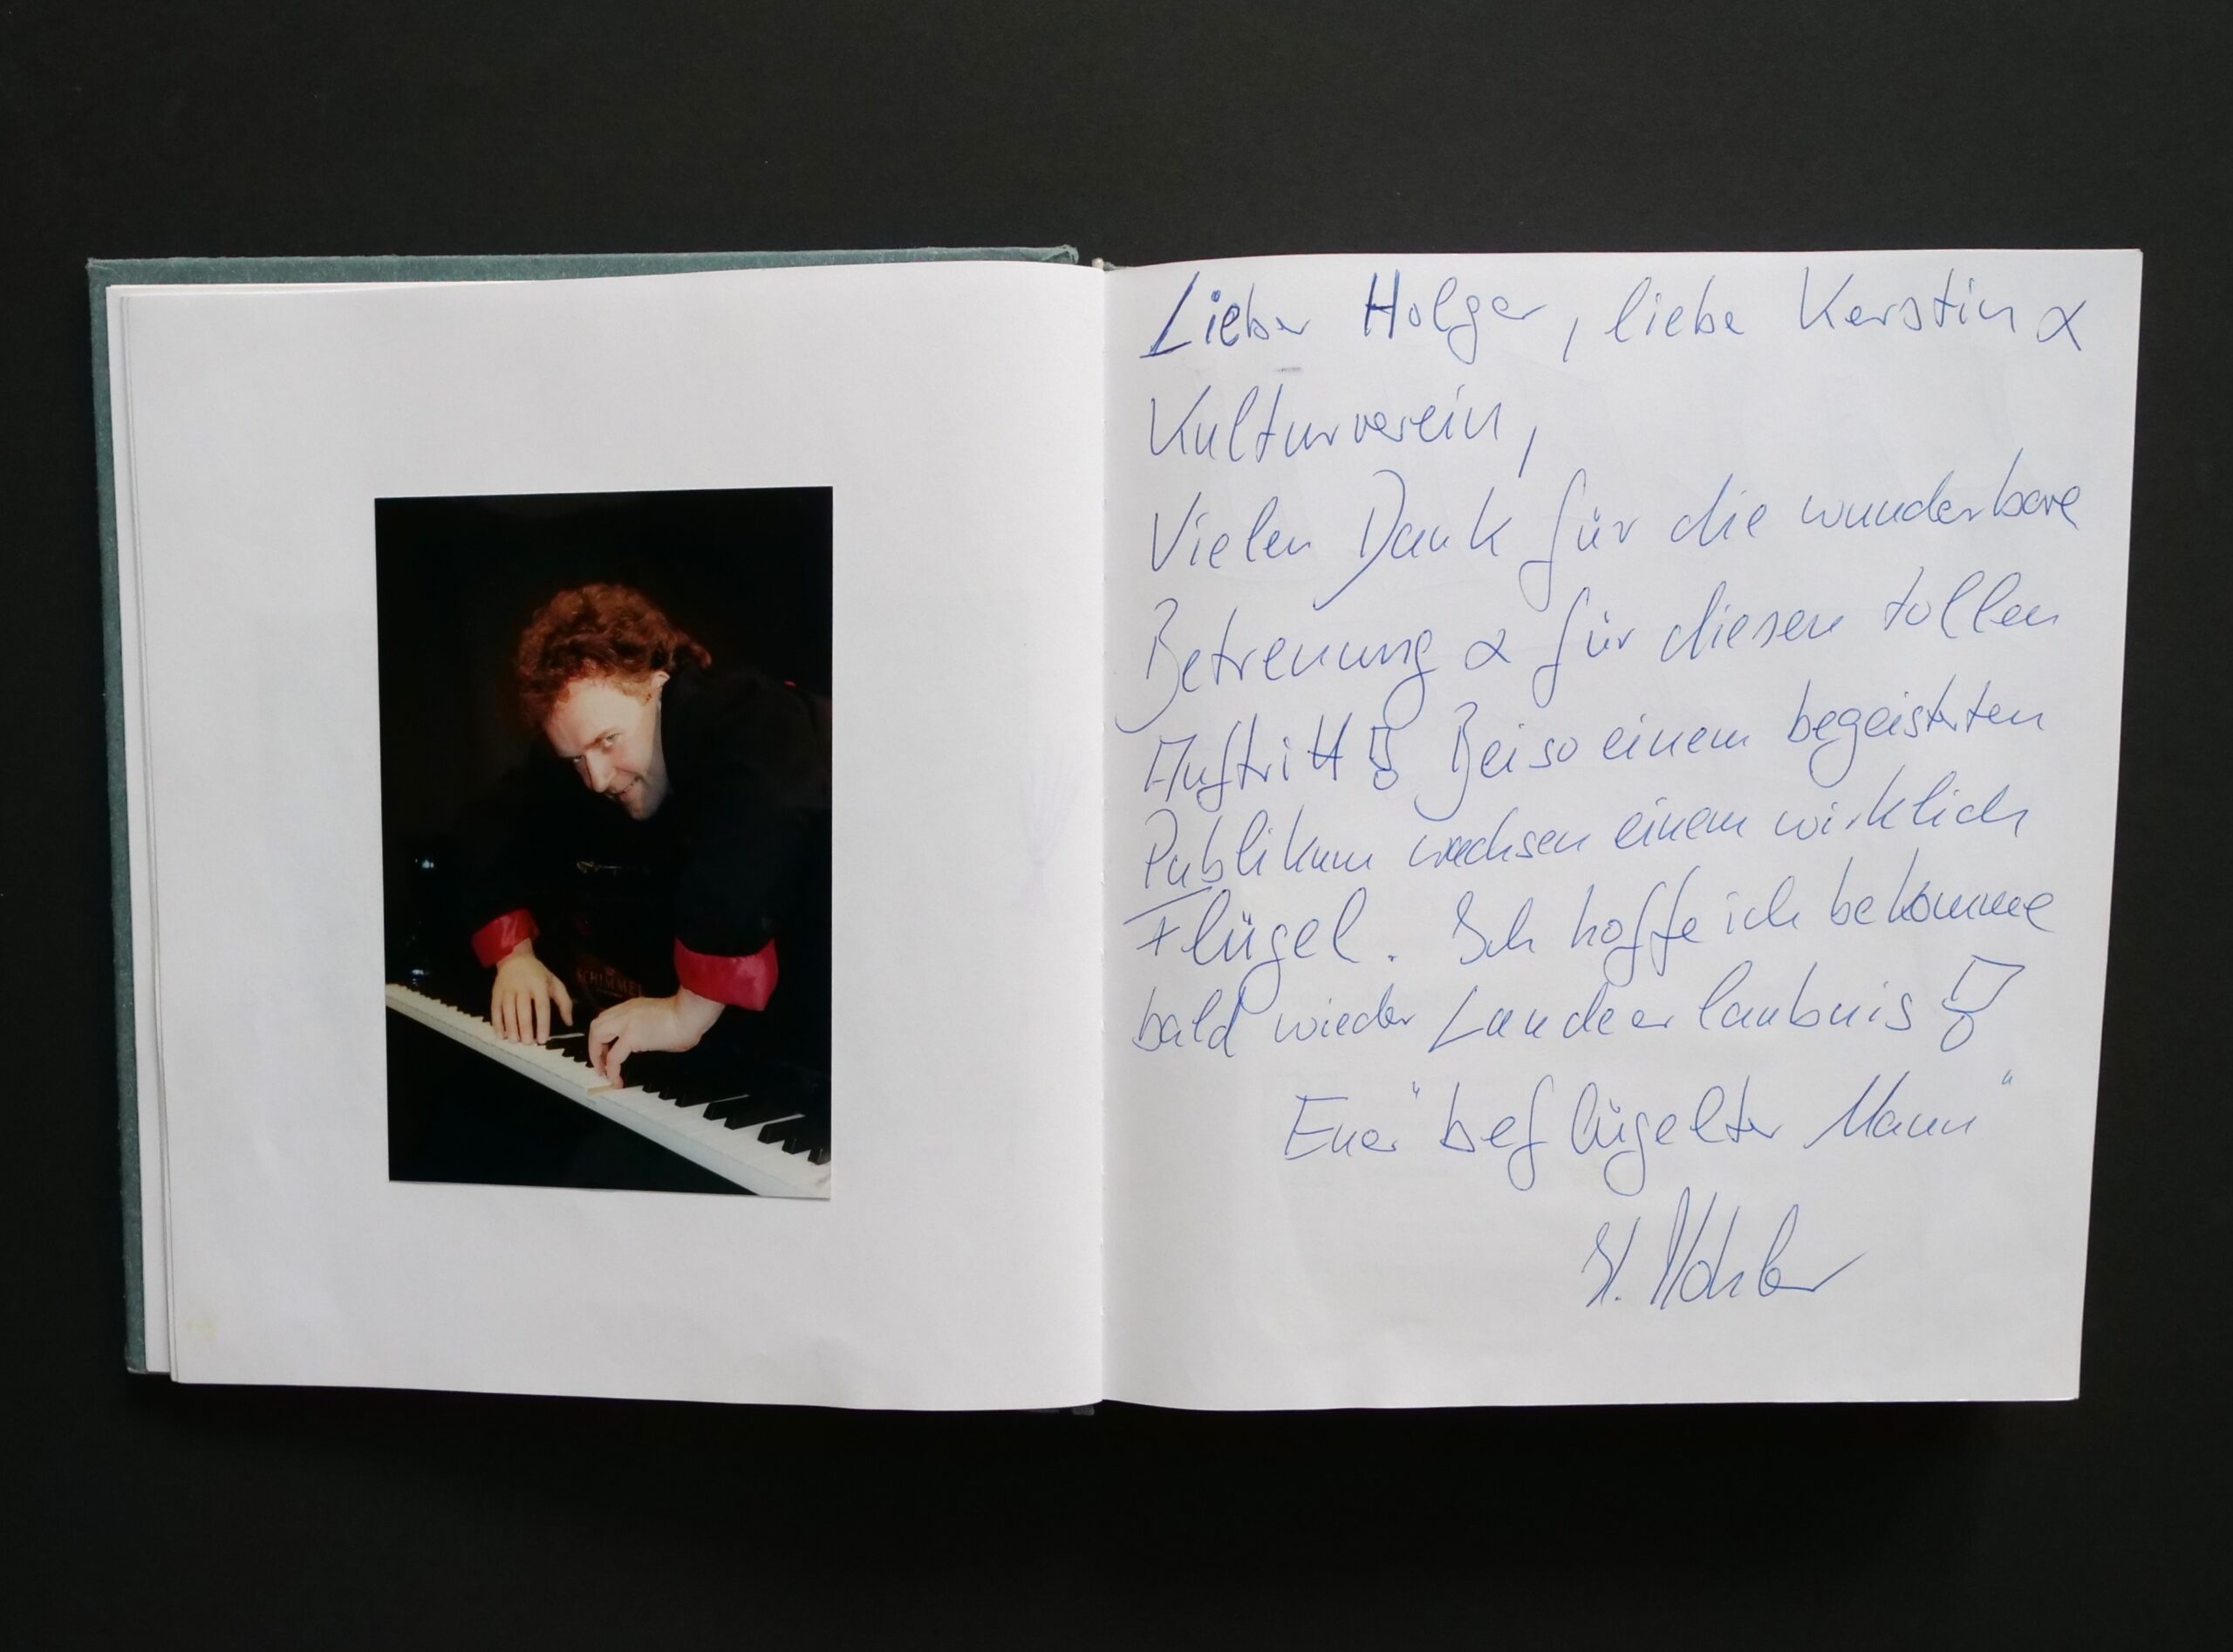 SCHIMMEL
Lieber Holger, liebe Kerstin &
Kulturverein,
Vielen Dank für die wunderbare
Betreuung & für diesen tollen
Auftritt! Bei so einem begeisterten
Publikum wachsen einem wirklich
Flügel. Ich hoffe ich bekomme
bald wieder Landeerlaubnis!
Euer "beflügelter Mann"